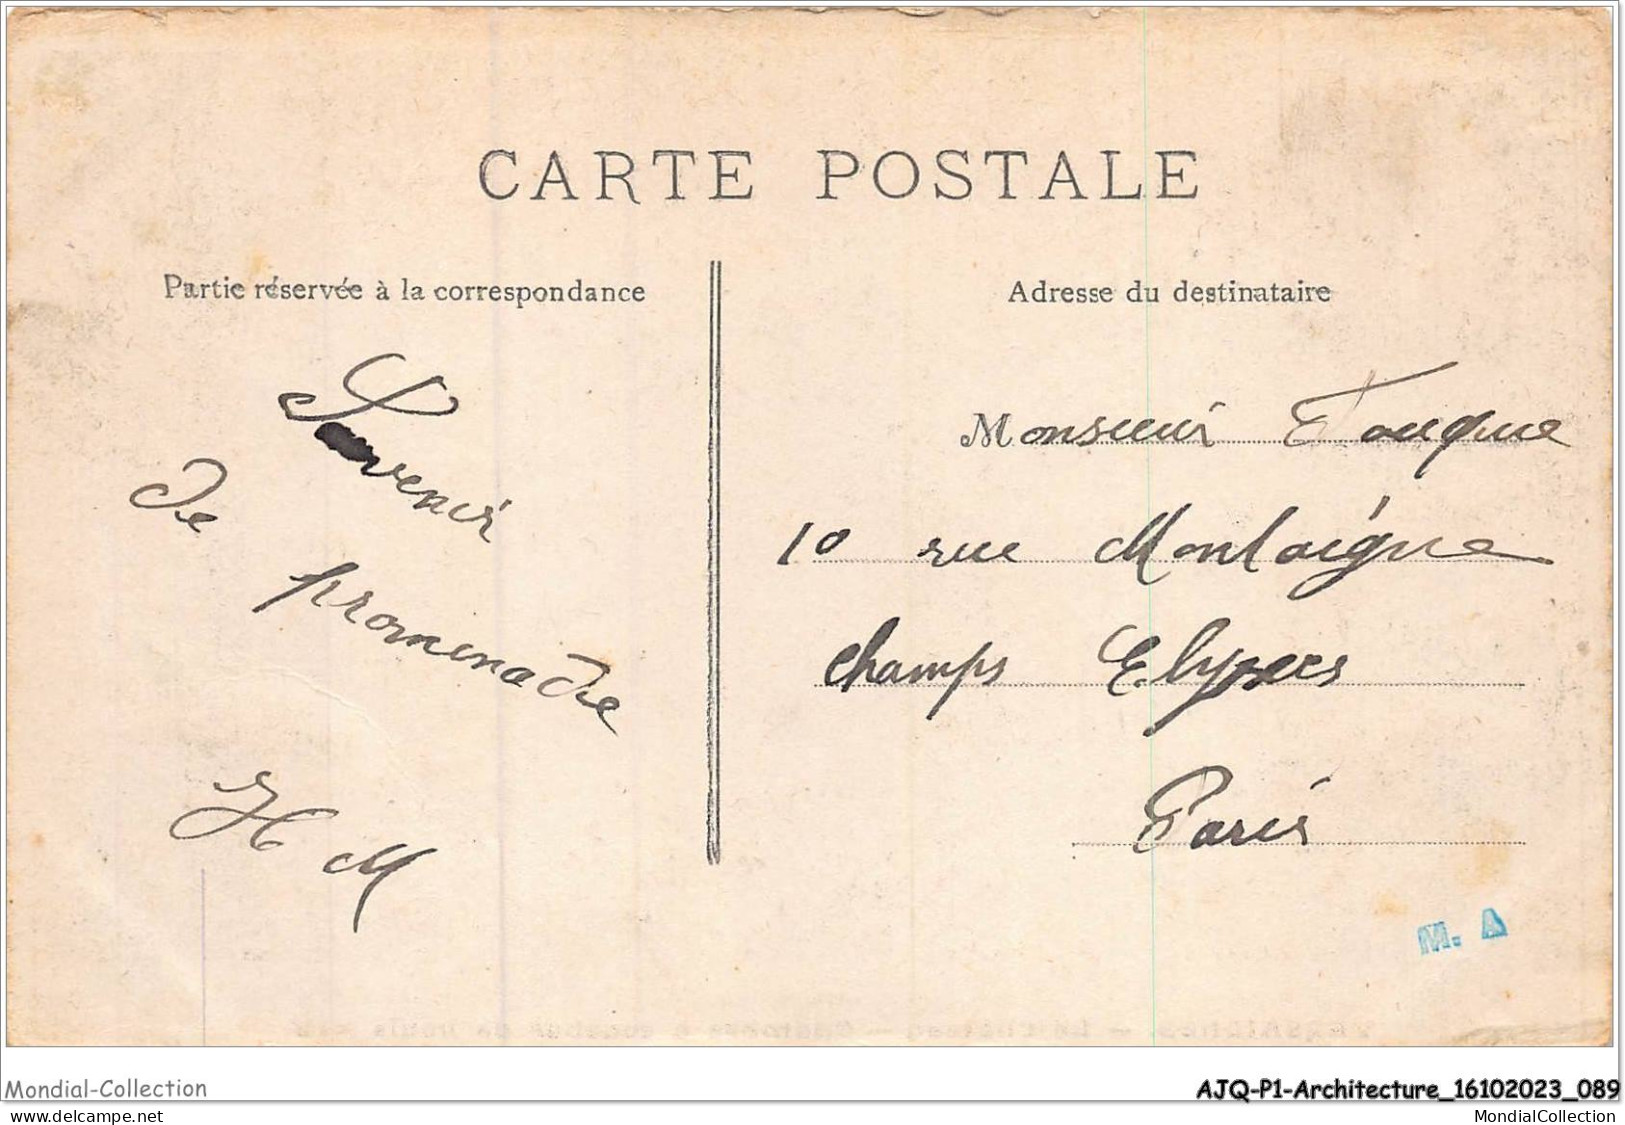 CARTE POSTALE
Partie réservée à la correspondance
Souvenir
de
promenade
H M
Adresse du destinataire
Monsieur Fouque
10 rue Montaigne
champs Elysees
Paris
M. A
Mondial-Collection
AJQ-P1-Architecture_16102023_089
www.delcampe.net
MondialCollection